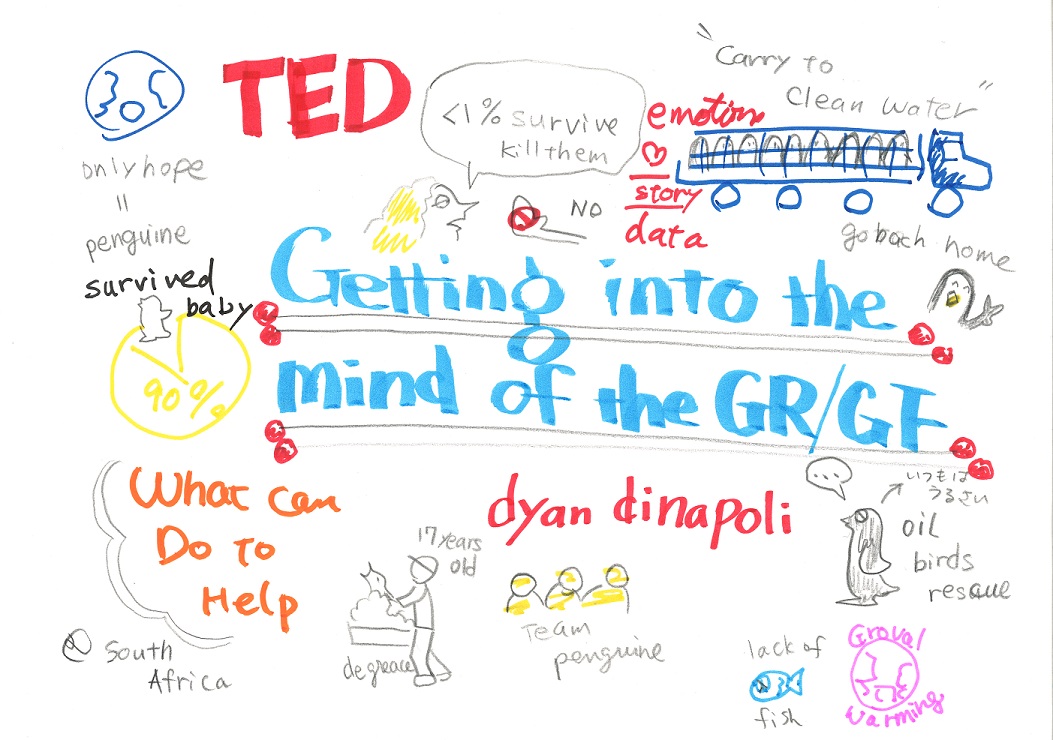 TED
<1% survive
kill them
emotion
story
data
"Carry to
Clean water"
only hope
=
penguine
NO
go bach home
survived
baby
90%
Getting into the
mind of the GR/GF
What can
Do To
Help
dyan dinapoli
17 years
old
degreace
Team
penguine
...
いつもは
うるさい
oil
birds
resque
South
Africa
lack of
fish
Groval
Warming